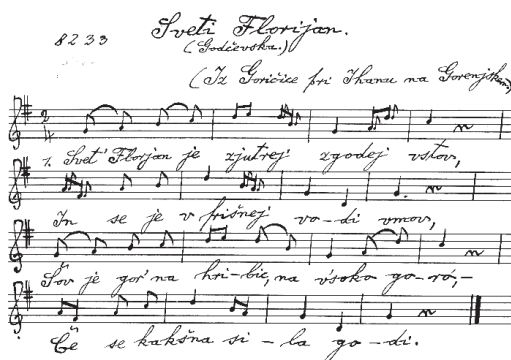 8233
Sveti Florijan.
(Godčevska.)
(Iz Goričice pri Ihanu na Gorenjskem)
2
4
1. Svet' Florjan je zjutrej zgodej vstov,
In se je v frišnej vo-di vmov,
Šov je gor' na hri-bic, na v'soko go-ró,-
Če se kakšna si-la go-di.